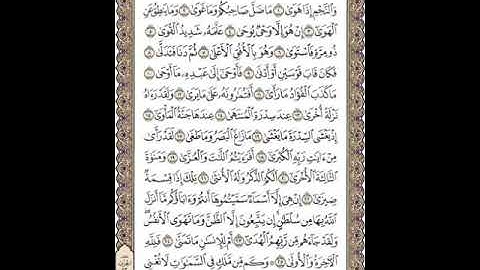 وَالنَّجْمِ إِذَا هَوَىٰ ۝١ مَا ضَلَّ صَاحِبُكُمْ وَمَا غَوَىٰ ۝٢ وَمَا يَنطِقُ عَنِ
الْهَوَىٰ ۝٣ إِنْ هُوَ إِلَّا وَحْيٌ يُوحَىٰ ۝٤ عَلَّمَهُ شَدِيدُ الْقُوَىٰ ۝٥
ذُو مِرَّةٍ فَاسْتَوَىٰ ۝٦ وَهُوَ بِالْأُفُقِ الْأَعْلَىٰ ۝٧ ثُمَّ دَنَا فَتَدَلَّىٰ ۝٨
فَكَانَ قَابَ قَوْسَيْنِ أَوْ أَدْنَىٰ ۝٩ فَأَوْحَىٰ إِلَىٰ عَبْدِهِ مَا أَوْحَىٰ ۝١٠
مَا كَذَبَ الْفُؤَادُ مَا رَأَىٰ ۝١١ أَفَتُمَارُونَهُ عَلَىٰ مَا يَرَىٰ ۝١٢ وَلَقَدْ رَآهُ
نَزْلَةً أُخْرَىٰ ۝١٣ عِندَ سِدْرَةِ الْمُنتَهَىٰ ۝١٤ عِندَهَا جَنَّةُ الْمَأْوَىٰ ۝١٥
إِذْ يَغْشَى السِّدْرَةَ مَا يَغْشَىٰ ۝١٦ مَا زَاغَ الْبَصَرُ وَمَا طَغَىٰ ۝١٧ لَقَدْ رَأَىٰ
مِنْ آيَاتِ رَبِّهِ الْكُبْرَىٰ ۝١٨ أَفَرَأَيْتُمُ اللَّاتَ وَالْعُزَّىٰ ۝١٩ وَمَنَاةَ
الثَّالِثَةَ الْأُخْرَىٰ ۝٢٠ أَلَكُمُ الذَّكَرُ وَلَهُ الْأُنثَىٰ ۝٢١ تِلْكَ إِذًا قِسْمَةٌ
ضِيزَىٰ ۝٢٢ إِنْ هِيَ إِلَّا أَسْمَاءٌ سَمَّيْتُمُوهَا أَنتُمْ وَآبَاؤُكُم مَّا أَنزَلَ
اللَّهُ بِهَا مِن سُلْطَانٍ إِن يَتَّبِعُونَ إِلَّا الظَّنَّ وَمَا تَهْوَى الْأَنفُسُ
وَلَقَدْ جَاءَهُم مِّن رَّبِّهِمُ الْهُدَىٰ ۝٢٣ أَمْ لِلْإِنسَانِ مَا تَمَنَّىٰ ۝٢٤ فَلِلَّهِ
الْآخِرَةُ وَالْأُولَىٰ ۝٢٥ وَكَم مِّن مَّلَكٍ فِي السَّمَاوَاتِ لَا تُغْنِي